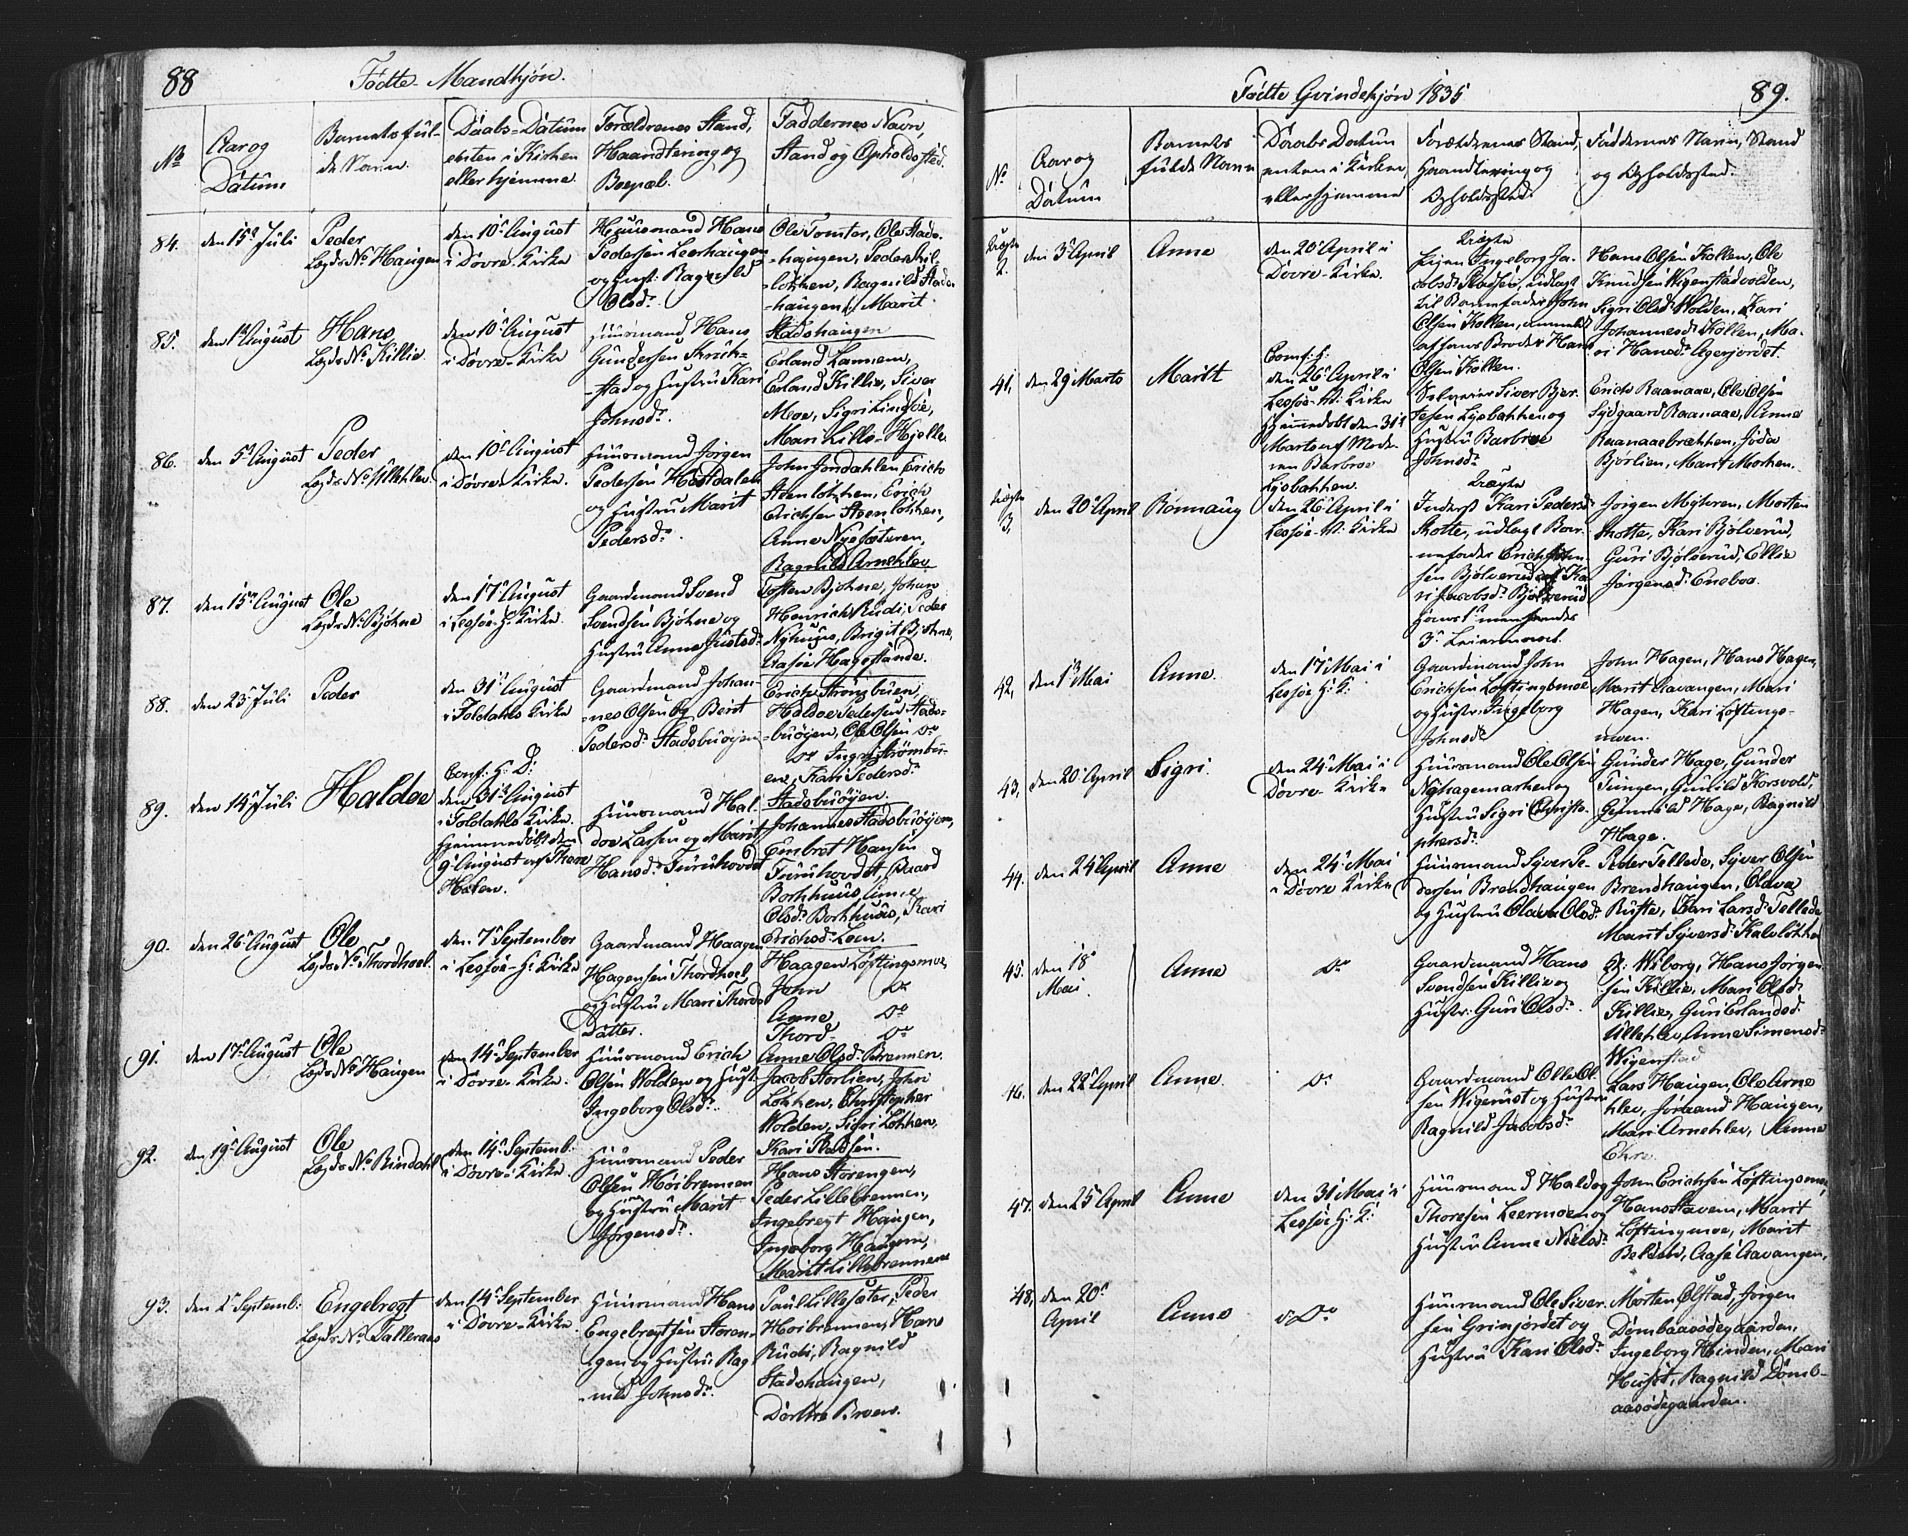 88
Fødte Mandkjøn.
No
Aar og
Datum
Barnets ful-
de Navn.
Daabs-Datum
enten i Kirken
eller hjemme.
Forældrenes Stand,
Haandtering og
Bopæl.
Faddernes Navn
Stand og Opholdssted.
84.
den 15de Juli
Peder
Lægds No Haugen
den 10de August
i Dovre-Kirke
Huusmand Hans
Pedersen Leerhaugen
og Hust: Ragnild
Olsd:
Ole Tomter, Ole Stads-
haugen, Peder
løkken, Ragnild Stads-
haugen, Marit
Stadshaugen
85.
den 1ste August
Hans
Lægds No Killie.
den 10de August
i Dovre-Kirke
Huusmand Hans
Gundersen
stad og Hustru Kari
Johnsd:
Erland Lannem,
Erland Killie, Siver
Moe, Sigri Lindsøe,
Mari Lille-Hjelle
86.
den 5te August
Peder
Lægds No Uleklev.
den 10de August
i Dovre-Kirke.
Huusmand Jørgen
Pedersen Hostdalen
og Hustru Marit
Pedersd:
John Jondahlen, Erich
Steenløkken, Erich
Erichsen Steenløkken,
Anne Nysæteren,
Ragnild Arneklev
87.
den 15de August
Ole
Lægds No Bjøkne
den 17de August
i Lessøe-H: Kirke.
Gaardmand Svend
Svendsen Bjøkne og
Hustru Anne Justsd:
Tosten Bjøkne, Johan
Henrich Rudi, Peder
Nyhuus, Brigit Bjøkne,
Aase Hagestande.
88.
den 23de Juli
Peder
den 31te August
i Foldahls Kirke
Gaardmand Johan-
nes Olsen og Berit
Pedersd: Stadsbuøyen
Erich Strømbuen
Haldoe Pedersen Stads-
buøyen, Ole Olsen do
do Ingri Strømbu-
en, Kari Pedersd:
Stadsbuøyen.
89.
den 14de Juli
Haldoe
Conf: H: D:
den 31te August
i Foldahls Kirke.
Hjemmedøbt den
9de August af Thore
Holen.
Huusmand Hal-
doe Larsen og Marit
Hansd: Furuhovdet
Johannes Stadsbuøyen,
Embret Hansen
Furuhovdet, Baard
Borkhuus, Anne
Olsd: Borkhuus, Kari
Erichsd: Leen.
90.
den 26de August
Ole
Lægds No Thordhoel.
den 7de September
i Lessøe-H: Kirke
Gaardmand Haagen
Hagensen Thordhoel
og Hustru Mari Thords
Datter.
Haagen Løftingsmoe,
John do
Anne do
Thord do
Anne Olsd: Brennen.
91.
den 17de August
Ole
Lægds No Haugen
den 14de September
i Dovre-Kirke.
Huusmand Erich
Olsen Wolden og Hust:
Ingeborg Olsd:
Jacob Storlien, John
Løkken, Christopher
Wolden, Sigri Løkken,
Kari Pladsen.
92.
den 19de August
Ole
Lægds No Rindahl
den 14de Septemb:
i Dovre-Kirke
Huusmand Peder
Olsen Høibrennen
og Hustru Marit
Jørgensd:
Hans Storengen,
Peder Lillebrennen,
Ingebregt Haugen,
Ingeborg Haugen,
Marit Lillebrennen
93.
den 2de Septemb:
Engebregt
Lægds No Talleraas
den 14de September
i Dovre-Kirke.
Huusmand Hans
Engebregtsen Storen-
gen og Hustru Rag-
nild Johnsd:
Paul Lillesæter, Peder
Høibrennen, Hans
Rudi, Ragnild
Stadshaugen,
Dorthe Broen.
Fødte Qvindekjøn 1835
89.
No
Aar og
Datum
Barnets
fulde Navn
Daabs Datum
enten i Kirken
eller hjemme
Forældrenes Stand,
Haandtering og
Opholdssted
Faddernes Navn, Stand
og Opholdssted.
Uægte
2.
den 3de April
Anne
den 20de April i
Dovre-Kirke.
Uægte
Pigen Ingeborg Ja-
cobsd: Pladsen, udlagt
til Barnefader John
Olsen Kollen, anmeldt
af hans Broder Hans
Olsen Kollen.
Hans Olsen Kollen, Ole
Knudsen Wigenstadvolden,
Sigri Olsd: Wolden, Kari
Johannesd: Kollen, Ma-
ri Hansd: Agerjordet.
41.
den 29de Marts
Marit
Comf: f:
den 26de April i
Lessøe-W: Kirke
Hjemmedøbt den 31te
Marts af Mode-
ren Barbroe
Lysbakken.
Selveier Siver Bjer-
tesen Lysbakken og
Hustru Barbroe
Johnsd:
Erich Raanaae, Ole Olsen
Sydgaard Raanaae, Anne
Raanaaebrækken,
Bjørlien, Marit Morken.
Uægte
3.
den 20de April
Rønnaug
den 26de April i
Lessøe-W: Kirke
Uægte
Inderst Kari Pedersd:
Stotte, udlagt Bar-
nefader Erich John-
sen Bjølverud
Kari Jacobsd: Bjølverud
3de Leiermaal.
Jørgen Myhren, Morten
Stotte, Kari Bjølverud,
Guri Bjølverud, Ellie
Jørgensd: Eneboe.
42.
den 13de Mai
Anne.
den 17de Mai i
Lessøe H: K:
Gaardmand John
Erichsen Løftingsmoe
og Hustr: Ingeborg
Johnsd:
John Hagen, Hans Hagen,
Marit Ravangen, Mari
Hagen, Kari Løftings-
moen.
43.
den 20de April
Sigri.
den 24de Mai i
Dovre-Kirke
Huusmand Ole Olsen
Nyhagemarken og
Hustru Sigri Christo-
phersd:
Gunder Hage, Gunder
Tungen, Gunild Korsvold,
Gunnild Hage, Ragnild
Hage.
44.
den 24de April
Anne
den 24de Mai
i Dovre Kirke
Huusmand Syver Pe-
dersen Brendhaugen
og Hustru Olava Olsd:
Peder Tellede, Syver Olsen
Brendhaugen, Olava
Rusten, Kari Larsd: Tellede
Marit Syversd: Kalvløkken
45.
den 18de
Mai.
Anne
do
Gaardmand Hans
Svendsen Killie og
Hustr: Guri Olsd:
Wiborg, Hans Jørgen-
sen Killie, Mari Olsd:
Killie, Guri Erlandsd:
Uleklev, Anne Simensd:
Wigenstad
46.
den 22de April
Anne.
do
Gaardmand Ole Ol-
sen Wigerust og Hustru
Ragnild Jacobsd:
Lars Haugen, Ole Arne
klev, Jørand Haugen,
Mari Arneklev, Anne
Ekre
47.
den 25de April
Anne
den 31te Mai i
Lessøe H: K:
Huusmand Haldog
Thoresen Leermoen og
Hustru Anne Nielsd:
John Erichsen Løftingsmoe,
Hans Stavem, Marit
Løftingsmoe, Marit
Bolden, Aase Ravangen,
48.
den 20de
April
Anne
do
Huusmand Ole Siver-
sen Grinjordet og
Hustru Kari Olsd:
Morten Olstad, Jørgen
Dombaasødegaarden,
Ingeborg Hinden, Mari
Ragnild Domb-
aasødegaarden.